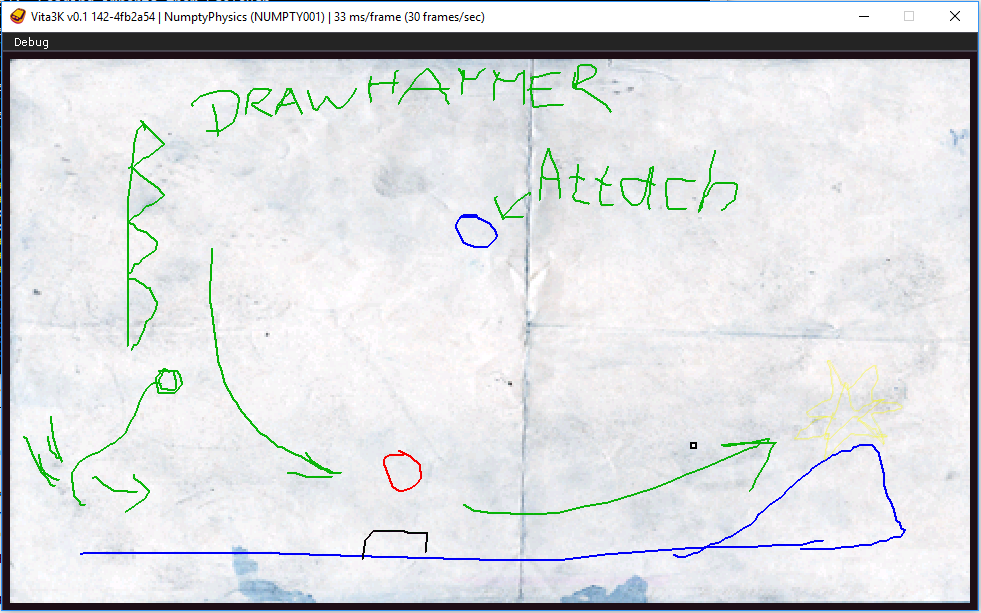 Vita3K v0.1 142-4fb2a54 | NumptyPhysics (NUMPTY001) | 33 ms/frame (30 frames/sec)
Debug
DRAW HAMMER
Attach